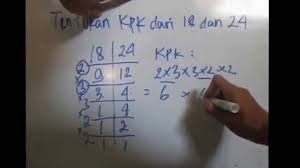 Tentukan KPK dari 18 dan 24
18 24
KPK :
2 9 12
2×3×3×2×2
3 3 4
= 6 ×
×3 1 4
×2 1 2
×2 1 1